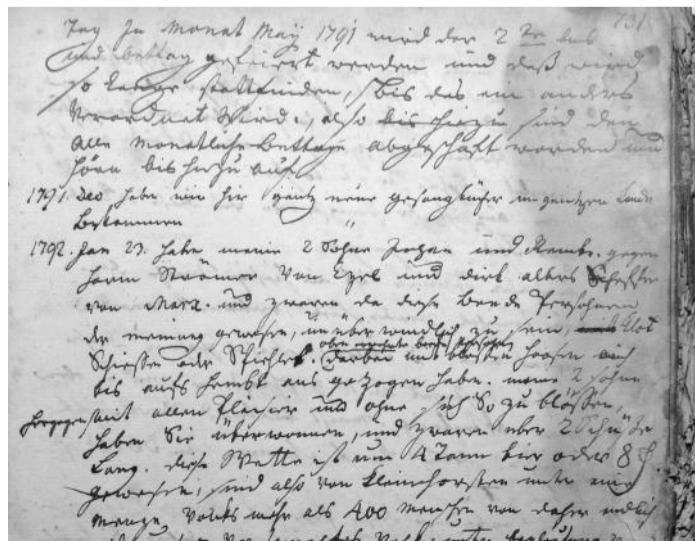 731
Tag In Monat May 1791 wird der 2 te bus
und bettag gefeiert werden und daß wird
so lange stattfinden, bis das ein anders
Verordnet Wird, also bis hiezu sind den
alle Monatliche Bettage abgeschaft worden und
hörn bis hierzu auf
1791. Dec habe wir hir gantz neue gesangbücher im gantzen Lande
bekommen
1792. Jan 23. habe meine 2 Söhne Johan und Remb. gegen
Harm Strömer Von Ezel und dirk alters Schefster
von Marx. und zwaren da diese beyde Persohnen
der meinung gewesen, unüberwindlich zu sein, Klot
Schiessen oder Spiehlen. oben
darben mit blossen hoosen
bis aufs hembt aus gezogen habe. meine 2 söhne
hergegen mit allen Plesier und ohne sich So zu blössen,
haben Sie überwonnen, und zwaren über 2 Schüße
Lang. diese Wette ist um 4 Tonn bier oder 8
gewesen, sind also von Kleinhorsten unter eine
menge Volcks mehr als 400 menschen von daher endlich
Volck unter begleitung